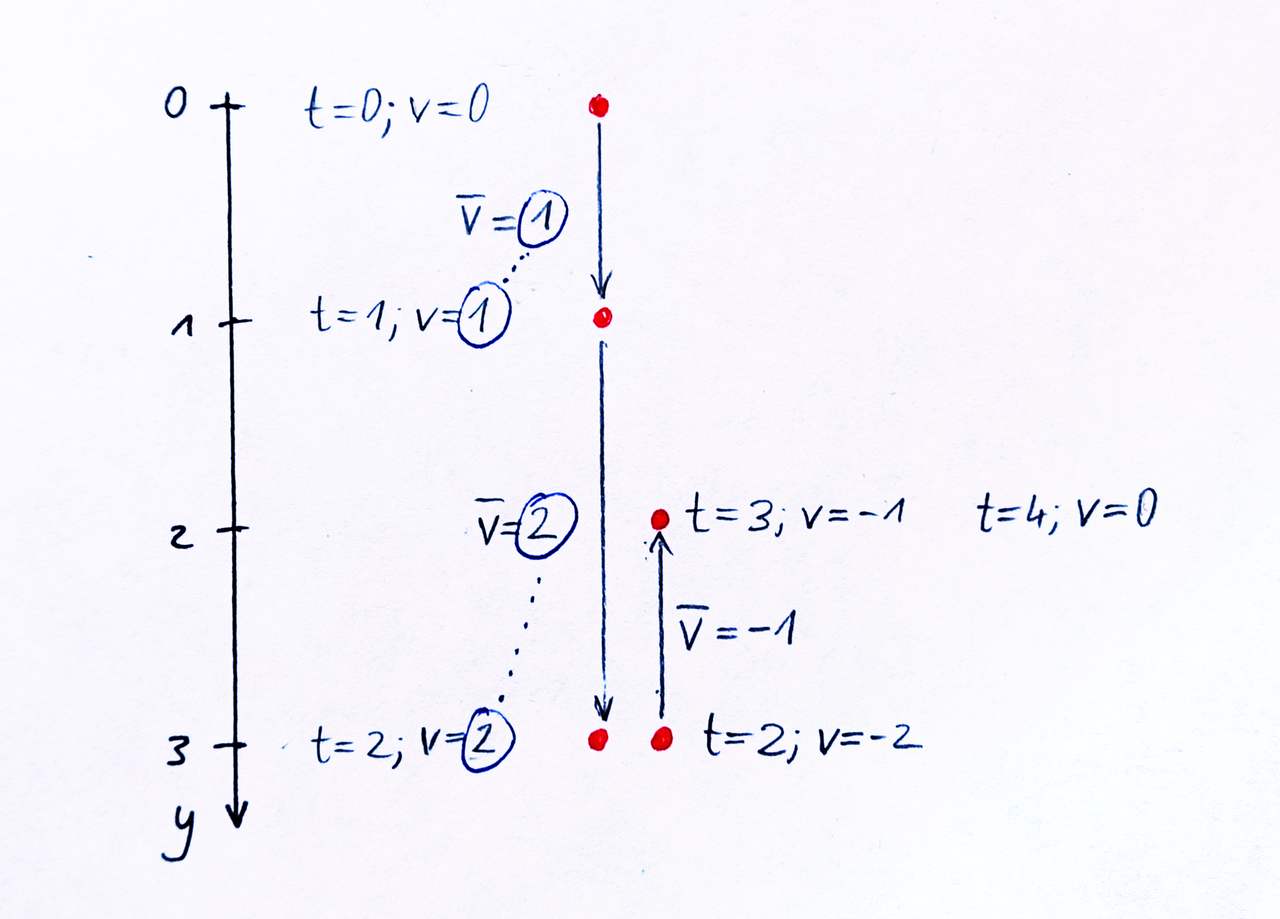 0 t=0; v=0
v̅=1
1 t=1; v=1
2 v̅=2 t=3; v=-1 t=4; v=0
v̅=-1
3 t=2; v=2 t=2; v=-2
y